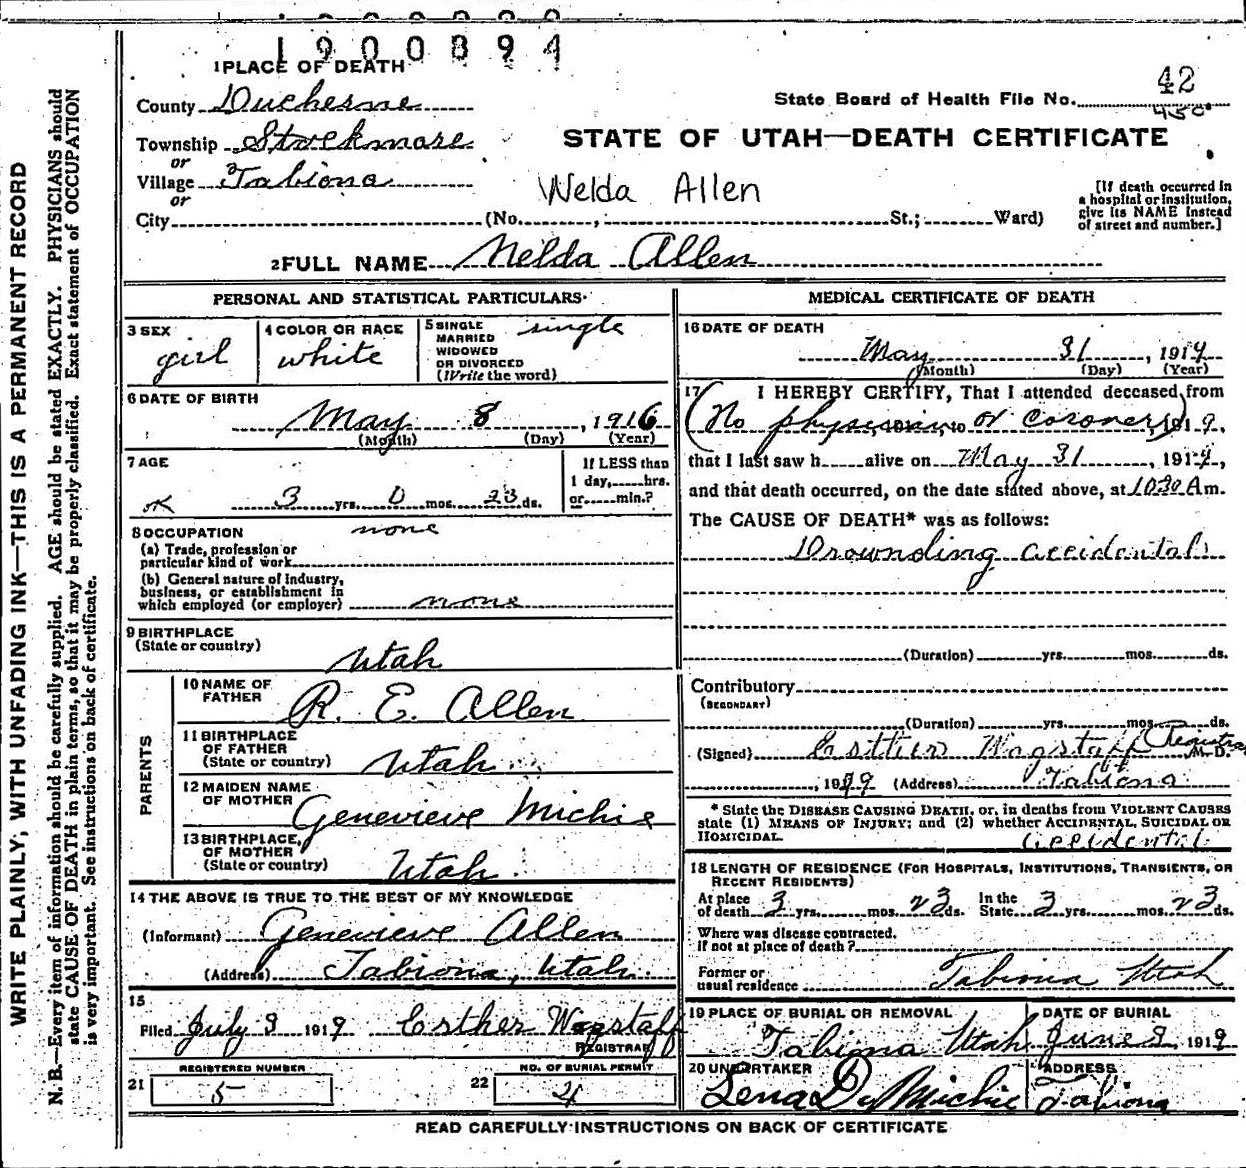 1900894
1 PLACE OF DEATH
County Duchesne
State Board of Health File No. 42
450
Township Stockmore
or
Village Tabiona
or
City (No. , St.; Ward)
STATE OF UTAH—DEATH CERTIFICATE
Welda Allen
[If death occurred in
a hospital or institution,
give its NAME instead
of street and number.]
2 FULL NAME Nelda Allen
PERSONAL AND STATISTICAL PARTICULARS
3 SEX
girl
4 COLOR OR RACE
white
5 SINGLE
MARRIED
WIDOWED
OR DIVORCED
(Write the word)
single
6 DATE OF BIRTH
May 8, 1916
(Month) (Day) (Year)
7 AGE
3 yrs. 0 mos. 23 ds.
If LESS than
1 day, hrs.
or min.?
8 OCCUPATION none
(a) Trade, profession or
particular kind of work
(b) General nature of industry,
business, or establishment in
which employed (or employer) none
9 BIRTHPLACE
(State or country)
Utah
PARENTS
10 NAME OF
FATHER
R. E. Allen
11 BIRTHPLACE
OF FATHER
(State or country)
Utah
12 MAIDEN NAME
OF MOTHER
Genevieve Michie
13 BIRTHPLACE
OF MOTHER
(State or country)
Utah
14 THE ABOVE IS TRUE TO THE BEST OF MY KNOWLEDGE
(Informant) Genevieve Allen
(Address) Tabiona, Utah.
15
Filed July 3 1919 Esther Wagstaff
REGISTRAR
REGISTERED NUMBER
21 5
NO. OF BURIAL PERMIT
22 4
MEDICAL CERTIFICATE OF DEATH
16 DATE OF DEATH
May 31, 1919
(Month) (Day) (Year)
17 I HEREBY CERTIFY, That I attended deceased from
(No physician or coroner) 1919,
that I last saw h alive on May 31, 1919,
and that death occurred, on the date stated above, at 10 30 A m.
The CAUSE OF DEATH* was as follows:
Drownding accidental
(Duration) yrs. mos. ds.
Contributory
(SECONDARY)
(Duration) yrs. mos. ds.
(Signed) Esther Wagstaff Registrar M. D.
, 1919 (Address) Tabiona
* State the DISEASE CAUSING DEATH, or, in deaths from VIOLENT CAUSES
state (1) MEANS OF INJURY; and (2) whether ACCIDENTAL, SUICIDAL OR
HOMICIDAL.
18 LENGTH OF RESIDENCE (FOR HOSPITALS, INSTITUTIONS, TRANSIENTS, OR
RECENT RESIDENTS)
At place
of death 3 yrs. mos. 23 ds.
In the
State 3 yrs. mos. 23 ds.
Where was disease contracted.
if not at place of death?
Former or
usual residence Tabiona Utah
19 PLACE OF BURIAL OR REMOVAL
Tabiona Utah
DATE OF BURIAL
June 2, 1919
20 UNDERTAKER
Lena D Michie
ADDRESS
Tabiona
READ CAREFULLY INSTRUCTIONS ON BACK OF CERTIFICATE
WRITE PLAINLY, WITH UNFADING INK—THIS IS A PERMANENT RECORD
N. B.—Every item of information should be carefully supplied. AGE should be stated EXACTLY. PHYSICIANS should
state CAUSE OF DEATH in plain terms, so that it may be properly classified. Exact statement of OCCUPATION
is very important. See instructions on back of certificate.